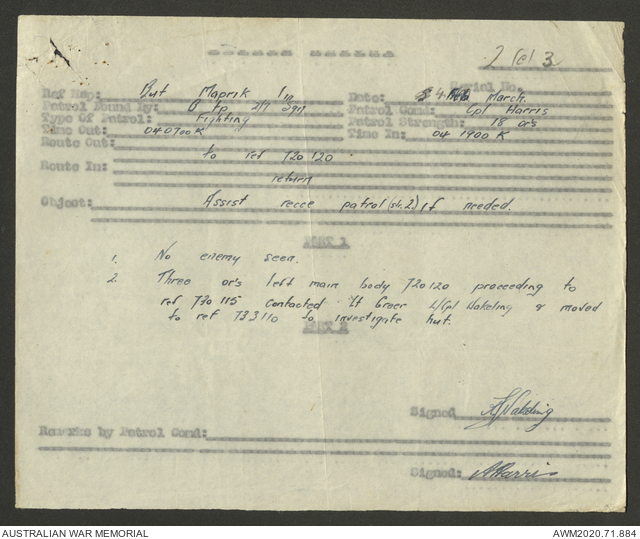 PATROL REPORT
Serial No. 2 (e) 3
Ref Map: But Maprik 1 in
Date: 4 March.
Patrol Found by: B Tp 2/7
Patrol Comd: Cpl Harris
Type Of Patrol: Fighting
Patrol Strength: 18 ors
Time Out: 040700K
Time In: 04 1900 K
Route Out: to ref 720120
Route In: return
Object: Assist recce patrol (sk.2) if needed.
PART 1
1. No enemy seen.
2. Three or's left main body 720120 proceeding to
ref 730115 contacted Lt Greer L/Cpl Wakeling & moved
to ref 733110 to investigate hut.
PART 2
Signed Wakeling
Remarks by Patrol Comd:
Signed: Harris
AUSTRALIAN WAR MEMORIAL
AWM2020.71.884